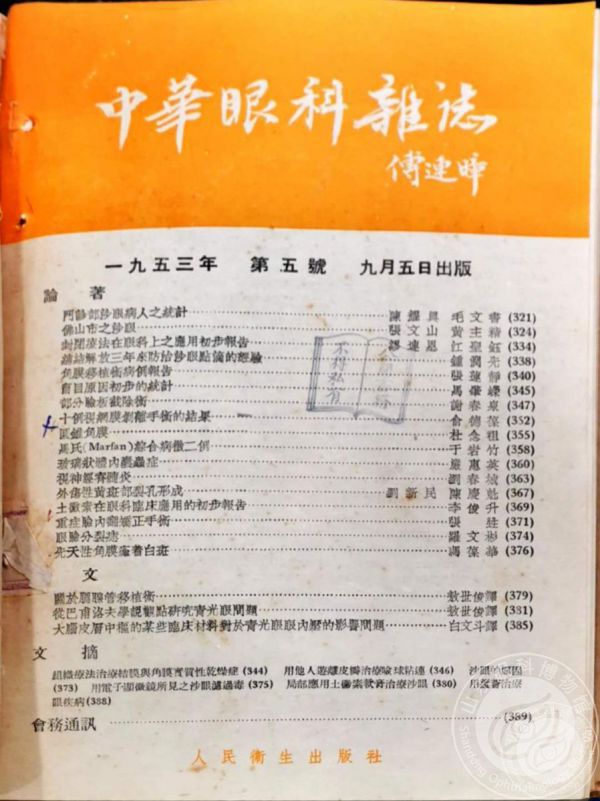 中華眼科雜誌
傅連暲
一九五三年 第五號 九月五日出版
論著
門診部沙眼病人之統計 陳耀真 毛文書 (321)
佛山市之沙眼 張文山 黃主精 (324)
封閉療法在眼科上之應用初步報告 繆連恩 江聖鈺 (334)
總結解放三年來防治沙眼點滴的經驗 鍾潤先 (338)
角膜移植術病例報告 張蓮靜 (340)
盲目原因初步的統計 馬肇嶸 (345)
部分瞼板截除術 謝春泉 (347)
十例視網膜剝離手術的結果 俞德葆 (352)
圓錐角膜 杜念祖 (355)
馬氏(Marfan)綜合病徵二例 于岩竹 (358)
玻璃狀體內囊蟲症 嚴惠英 (360)
視神經脊髓炎 劉春域 (363)
外傷性黃斑部裂孔形成 劉新民 陳慶乾 (367)
土黴素在眼科臨床應用的初步報告 李俊升 (369)
重症瞼內翻矯正手術 張 (371)
眼瞼分裂痣 羅文彬 (374)
先天性角膜瘢着白斑 馮葆華 (376)
文
關於腮腺管移植術 敖世俊譯 (379)
從巴甫洛夫學說觀點研究青光眼問題 敖世俊譯 (381)
大腦皮層中樞的某些臨床材料對於青光眼眼內壓的影響問題 白文斗譯 (385)
文摘
組織療法治療結膜與角膜實質性乾燥症 (344) 用他人遊離皮瓣治療瞼球粘連 (346) 沙眼的原因
(373) 用電子顯微鏡所見之沙眼濾過毒 (375) 局部應用土黴素軟膏治療沙眼 (380) 治療
眼疾病 (388)
會務通訊 (389)
人民衛生出版社
不得私有